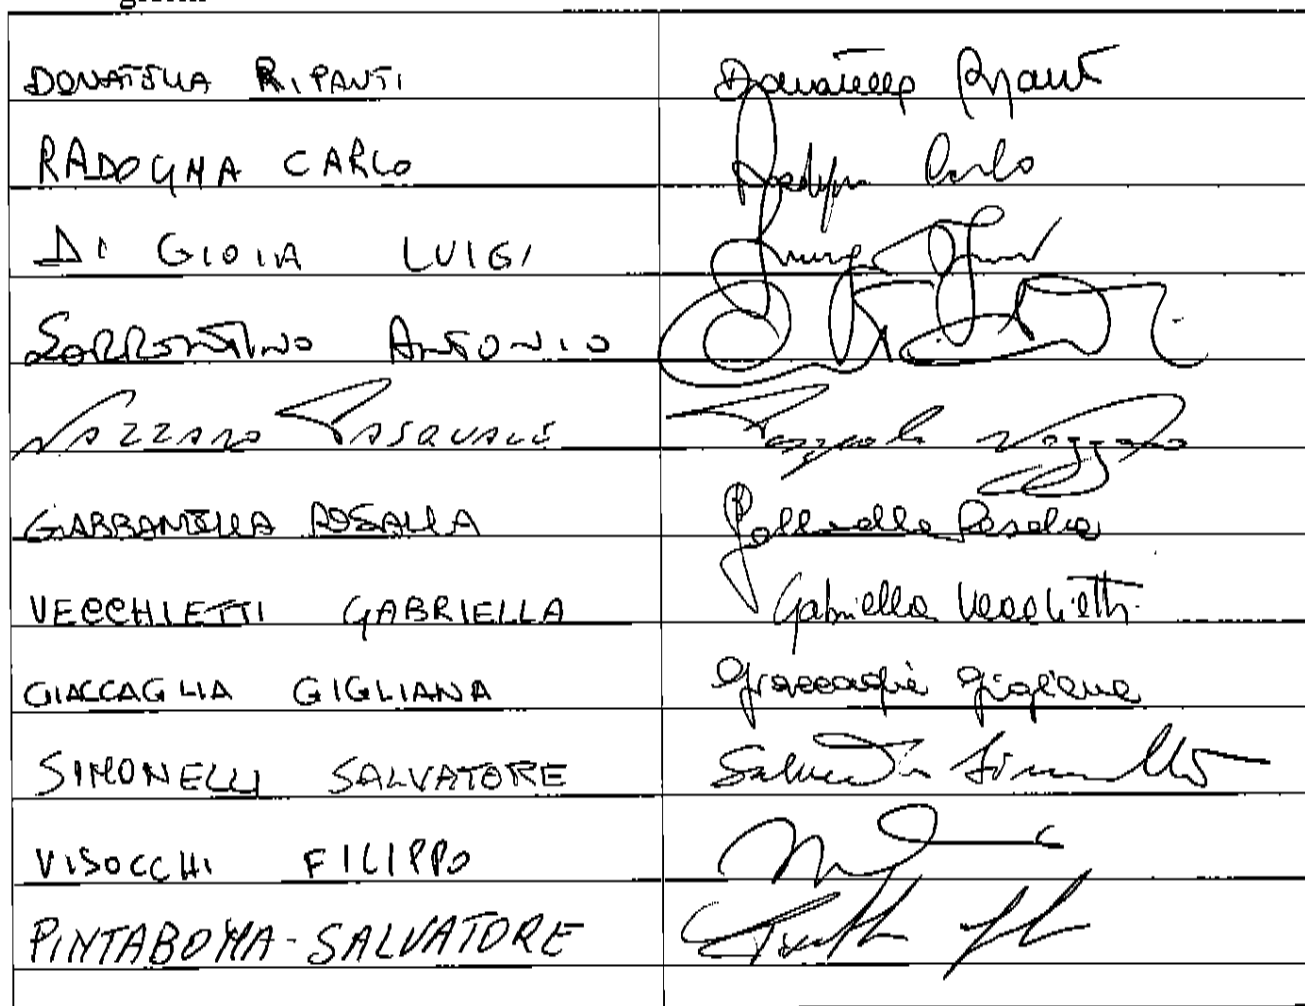 DONATELLA RIPANTI Donatella Ripanti
RADOGNA CARLO Radogna Carlo
DI GIOIA LUIGI Luigi
SORRENTINO ANTONIO
NAZZARO PASQUALE Pasquale Nazzaro
GABBANELLA ROSALIA Gabbanella Rosalia
VECCHIETTI GABRIELLA Gabriella Vecchietti
GIACCAGLIA GIGLIANA Giaccaglia Gigliana
SIMONELLI SALVATORE Salvatore Simonelli
VISOCCHI FILIPPO
PINTABONA-SALVATORE